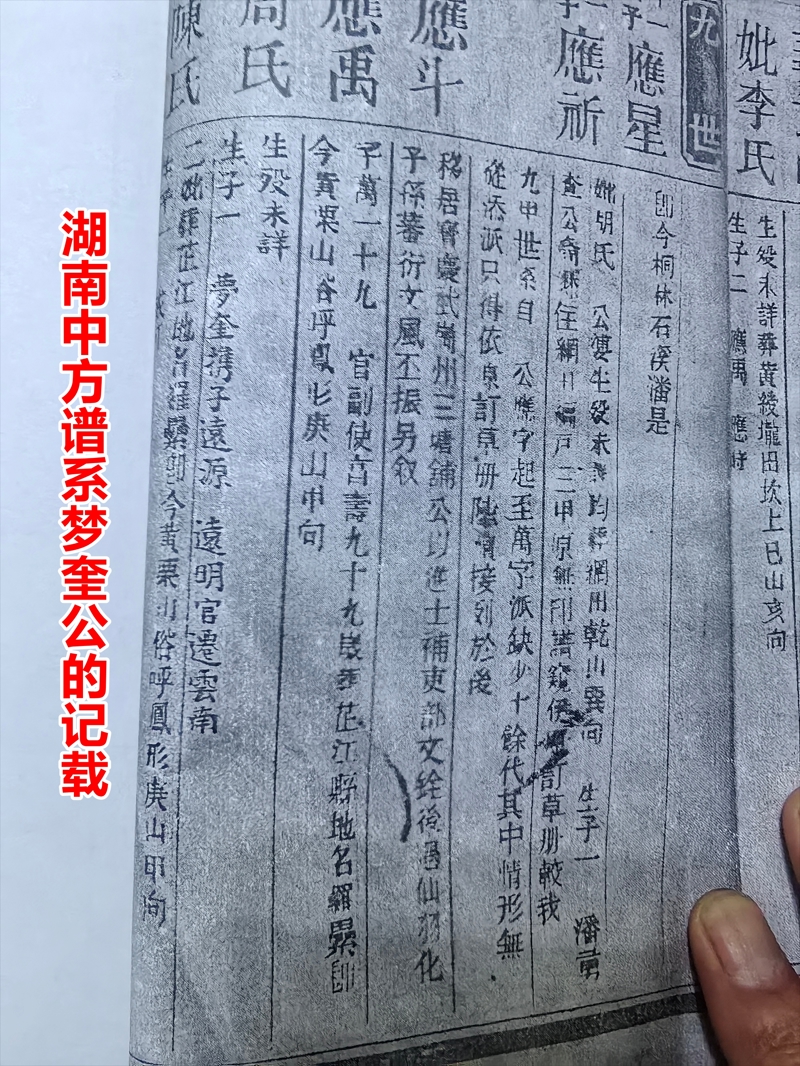 湖南中方谱系梦奎公的记载
妣李氏
生殁未詳葬黃綾壠田坎上巳山亥向
生子二 應禹 應時
九世
子一 應星
即今桐林石溪潘是
子一 應祈
妣胡氏 公妻生殁未詳均葬網用乾山巽向 生子一 潘
查公裔 住網 戶三甲原無刊譜 訂草册較我
九中世系自 公應字起至萬字派缺少十餘代其中情形無
從添派只得依原訂草册 接列於後
應斗
移居寶慶武崗州三塘鋪公以進士補吏部文銓後遇仙羽化
子孫蕃衍文風丕振另敘
應禹
子萬一十九 官副使音壽九十九歲葬芷江縣地名羅 即
今黃栗山俗呼鳳形庚山甲向
周氏
生殁未詳
生子一 夢奎携子遠源 遠明官遷雲南
陳氏
二妣葬芷江地名羅 即今黃栗山俗呼鳳形庚山甲向
生子一